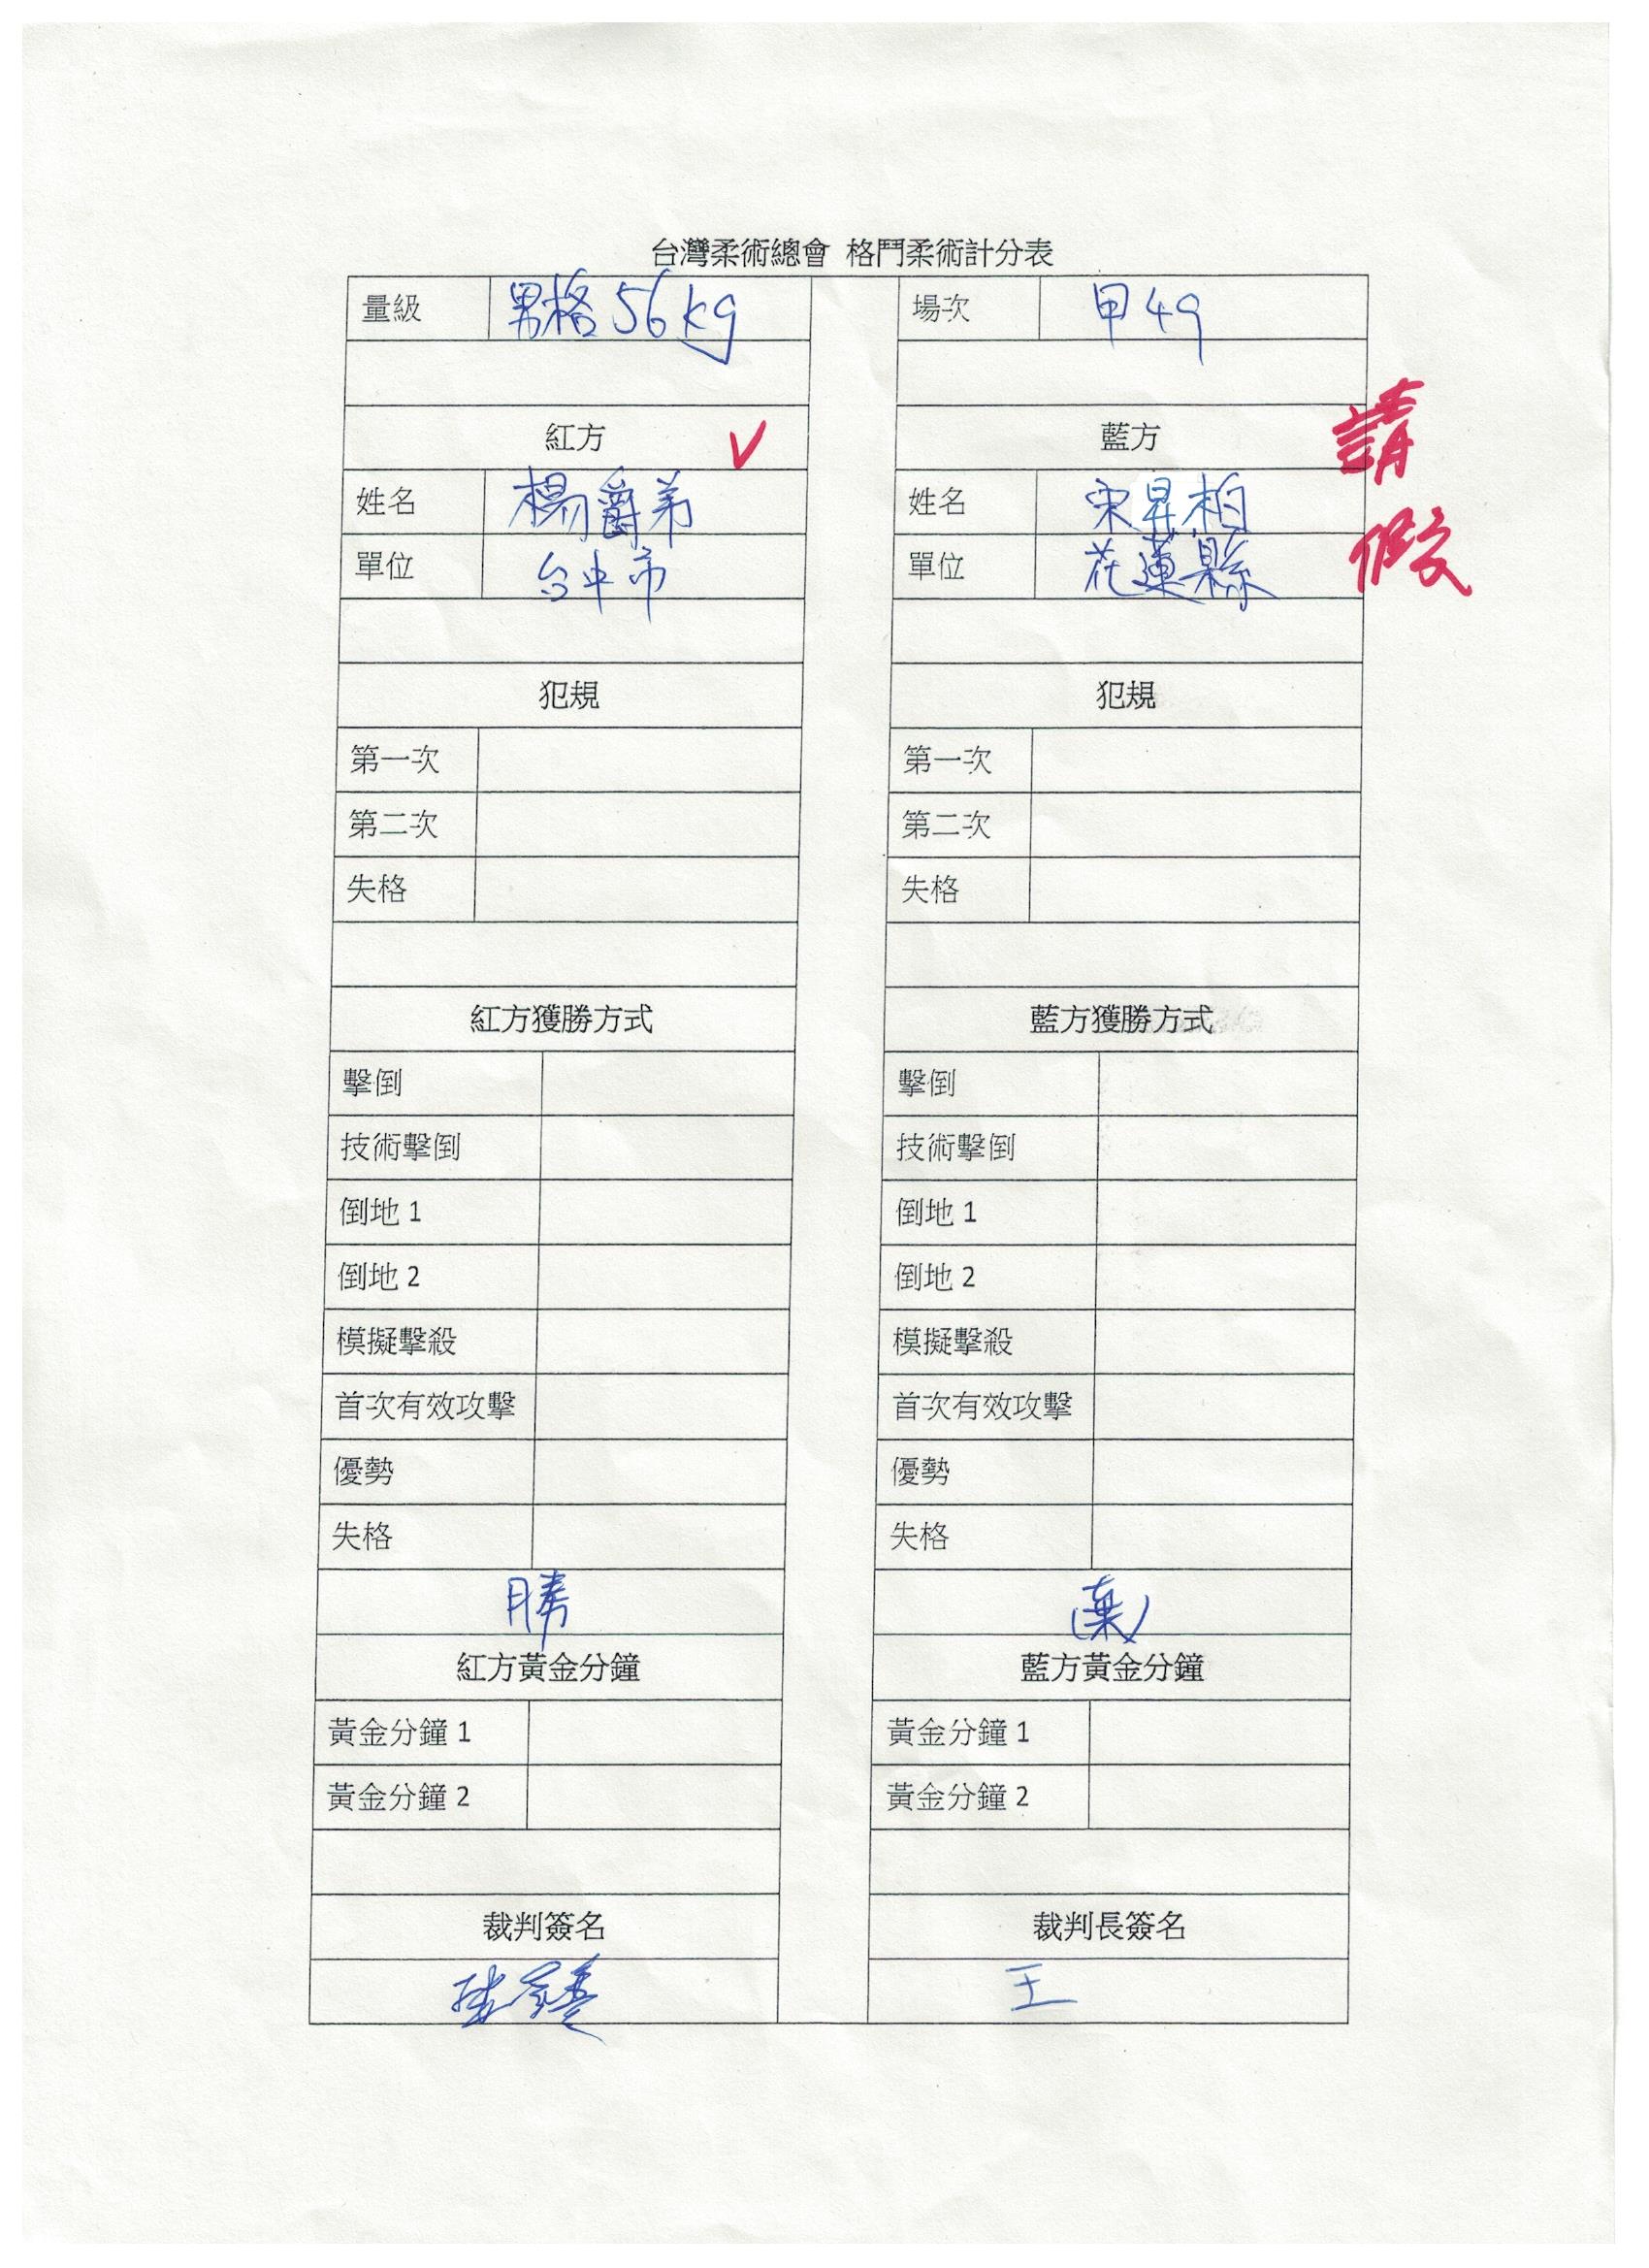 台灣柔術總會 格鬥柔術計分表
量級 男格56kg 場次 甲49
紅方 V 藍方 請假
姓名 楊爵弟 姓名 宋昇柏
單位 台中市 單位 花蓮縣
犯規 犯規
第一次 第一次
第二次 第二次
失格 失格
紅方獲勝方式 藍方獲勝方式
擊倒 擊倒
技術擊倒 技術擊倒
倒地 1 倒地 1
倒地 2 倒地 2
模擬擊殺 模擬擊殺
首次有效攻擊 首次有效攻擊
優勢 優勢
失格 失格
勝 (棄)
紅方黃金分鐘 藍方黃金分鐘
黃金分鐘 1 黃金分鐘 1
黃金分鐘 2 黃金分鐘 2
裁判簽名 裁判長簽名
王